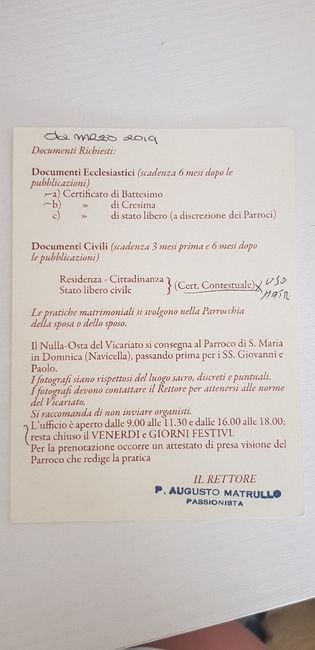 02 MARZO 2019
Documenti Richiesti:
Documenti Ecclesiastici (scadenza 6 mesi dopo le
pubblicazioni)
a) Certificato di Battesimo
b) » di Cresima
c) » di stato libero (a discrezione dei Parroci)
Documenti Civili (scadenza 3 mesi prima e 6 mesi dopo
le pubblicazioni)
Residenza - Cittadinanza
Stato libero civile } (Cert. Contestuale) x USO
MATR.
Le pratiche matrimoniali si svolgono nella Parrocchia
della sposa o dello sposo.
Il Nulla-Osta del Vicariato si consegna al Parroco di S. Maria
in Domnica (Navicella), passando prima per i SS. Giovanni e
Paolo.
I fotografi siano rispettosi del luogo sacro, discreti e puntuali.
I fotografi devono contattare il Rettore per attenersi alle norme
del Vicariato.
Si raccomanda di non inviare organisti.
L'ufficio è aperto dalle 9.00 alle 11.30 e dalle 16.00 alle 18.00;
resta chiuso il VENERDI e GIORNI FESTIVI.
Per la prenotazione occorre un attestato di presa visione del
Parroco che redige la pratica
IL RETTORE
P. AUGUSTO MATRULLO
PASSIONISTA